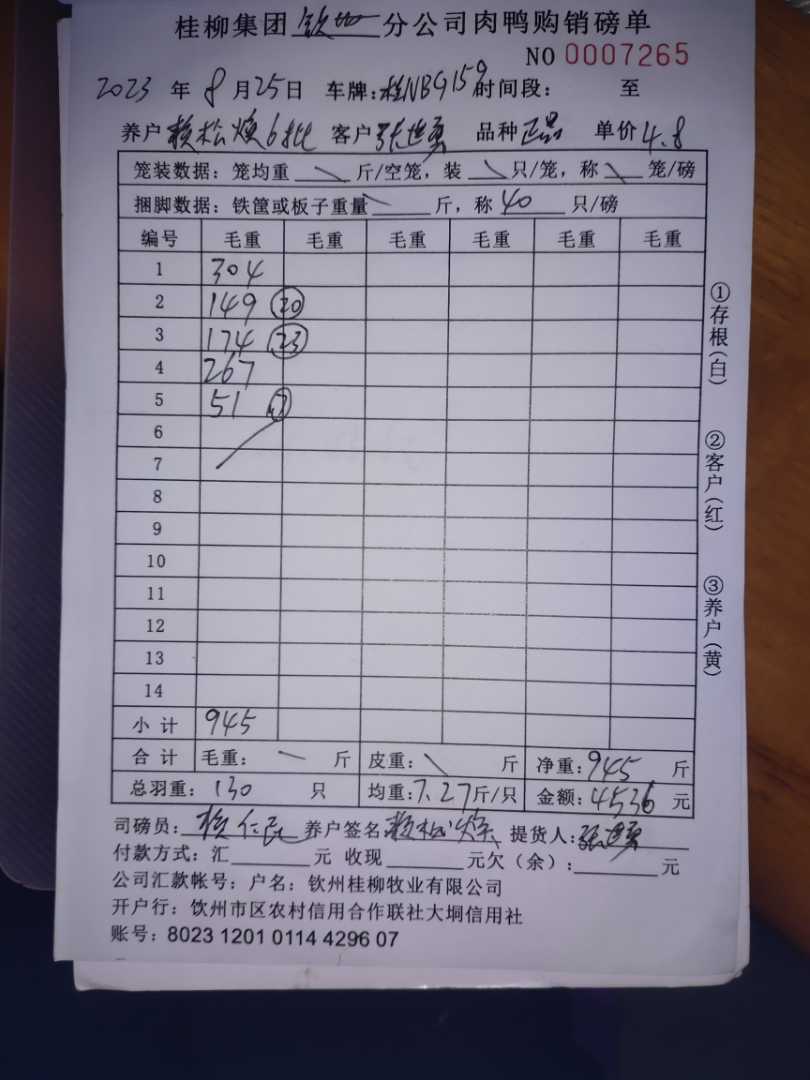 桂柳集团 钦州 分公司肉鸭购销磅单
NO 0007265
2023 年 8 月 25 日 车牌:桂NBG159 时间段: 至
养户 赖松焕6批 客户 张世勇 品种 正品 单价 4.8
笼装数据: 笼均重 \ 斤/空笼, 装 \ 只/笼, 称 \ 笼/磅
捆脚数据: 铁筐或板子重量 \ 斤, 称 40 只/磅
编号 毛重 毛重 毛重 毛重 毛重 毛重
1 304
2 149 20
3 174 23
4 267
5 51
6
7
8
9
10
11
12
13
14
小计 945
合计 毛重: \ 斤 皮重: \ 斤 净重: 945 斤
总羽重: 130 只 均重: 7.27 斤/只 金额: 4536 元
司磅员: 赖仁 养户签名 赖松焕 提货人: 张世勇
付款方式: 汇 元 收现 元欠(余): 元
公司汇款帐号: 户名: 钦州桂柳牧业有限公司
开户行: 钦州市区农村信用合作联社大垌信用社
账号: 8023 1201 0114 4296 07
①存根(白)
②客户(红)
③养户(黄)